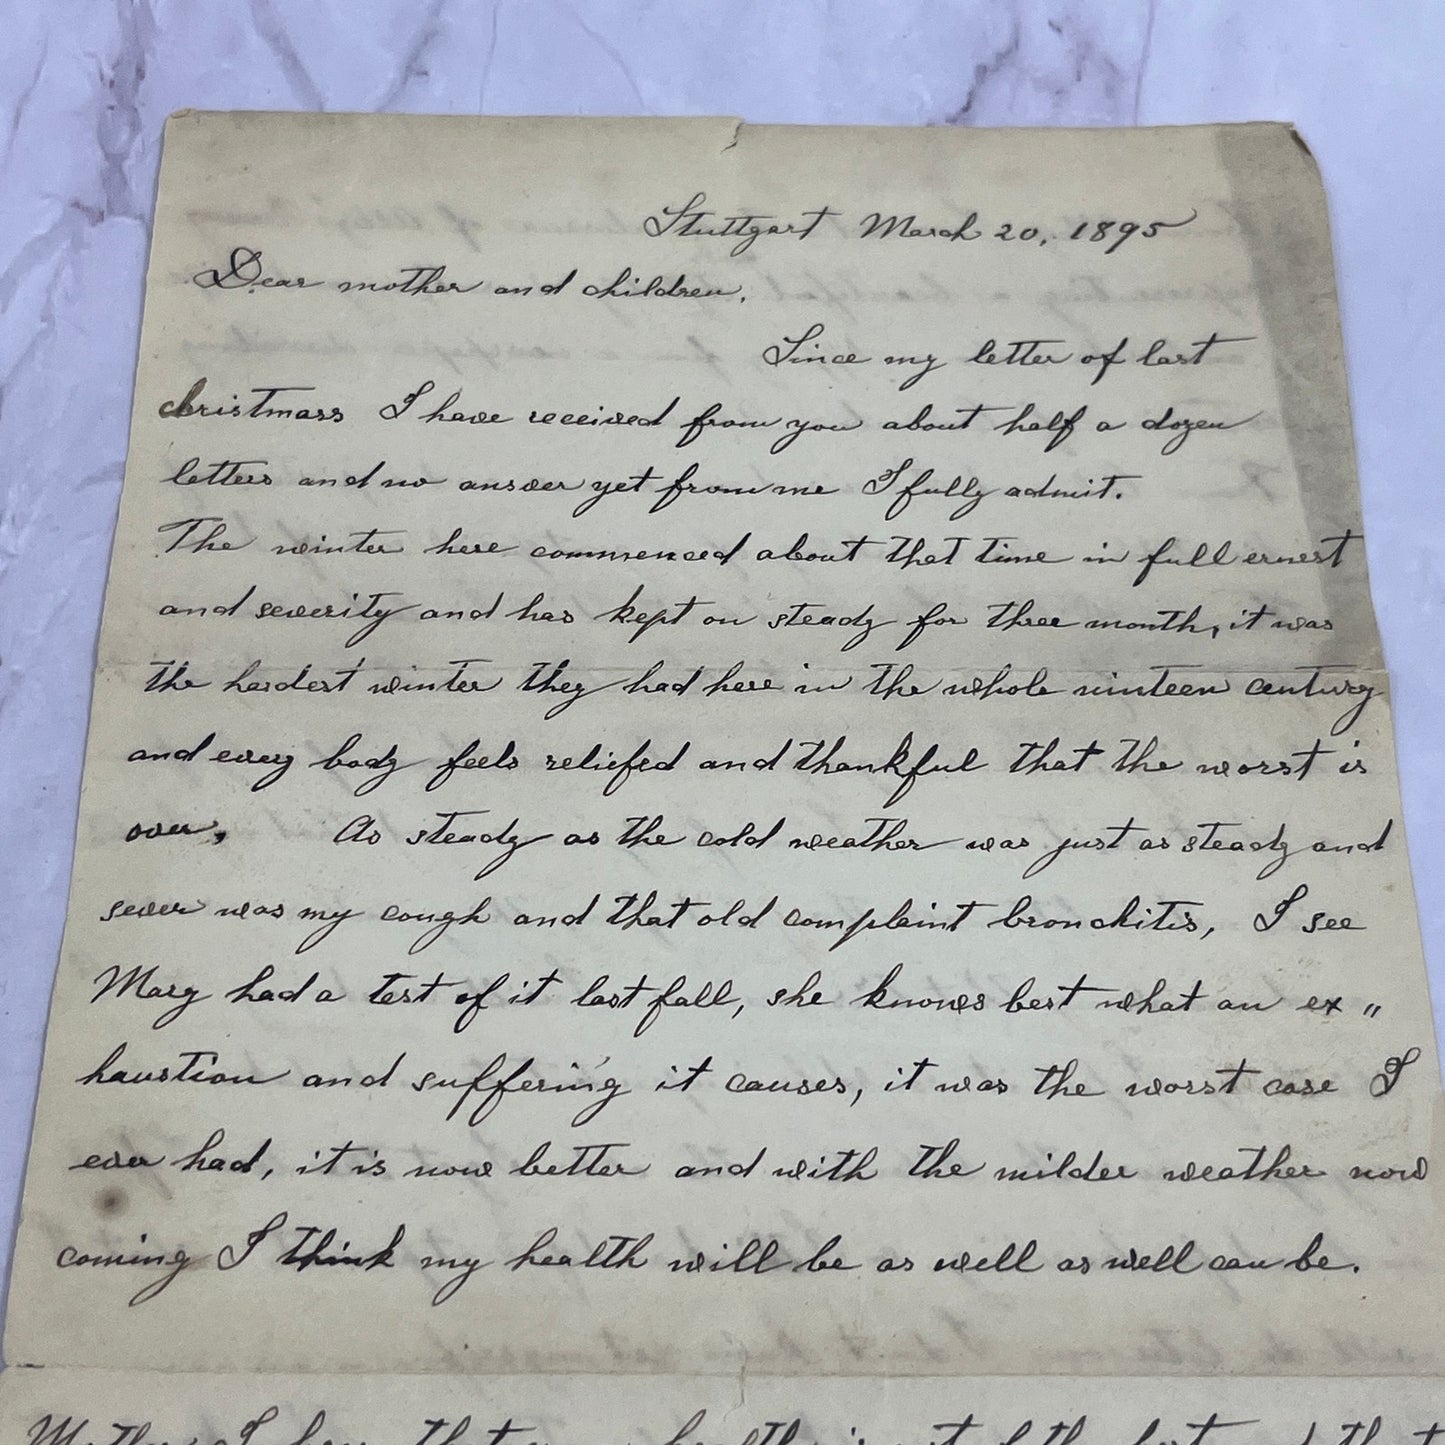 Stuttgart March 20, 1895
Dear mother and children,
Since my letter of last
christmass I have received from you about half a dozen
letters and no answer yet from me I fully admit.
The winter here commenced about that time in full ernest
and severity and has kept on steady for three month, it was
the hardest winter they had here in the whole ninteen century
and every body feels reliefed and thankful that the worst is
over, As steady as the cold weather was just as steady and
sever was my cough and that old complaint bronchitis, I see
Mary had a test of it last fall, she knows best what an ex"
haustion and suffering it causes, it was the worst case I
ever had, it is now better and with the milder weather now
coming I think my health will be as well as well can be.
Mother I hear that your health is not of the best and that